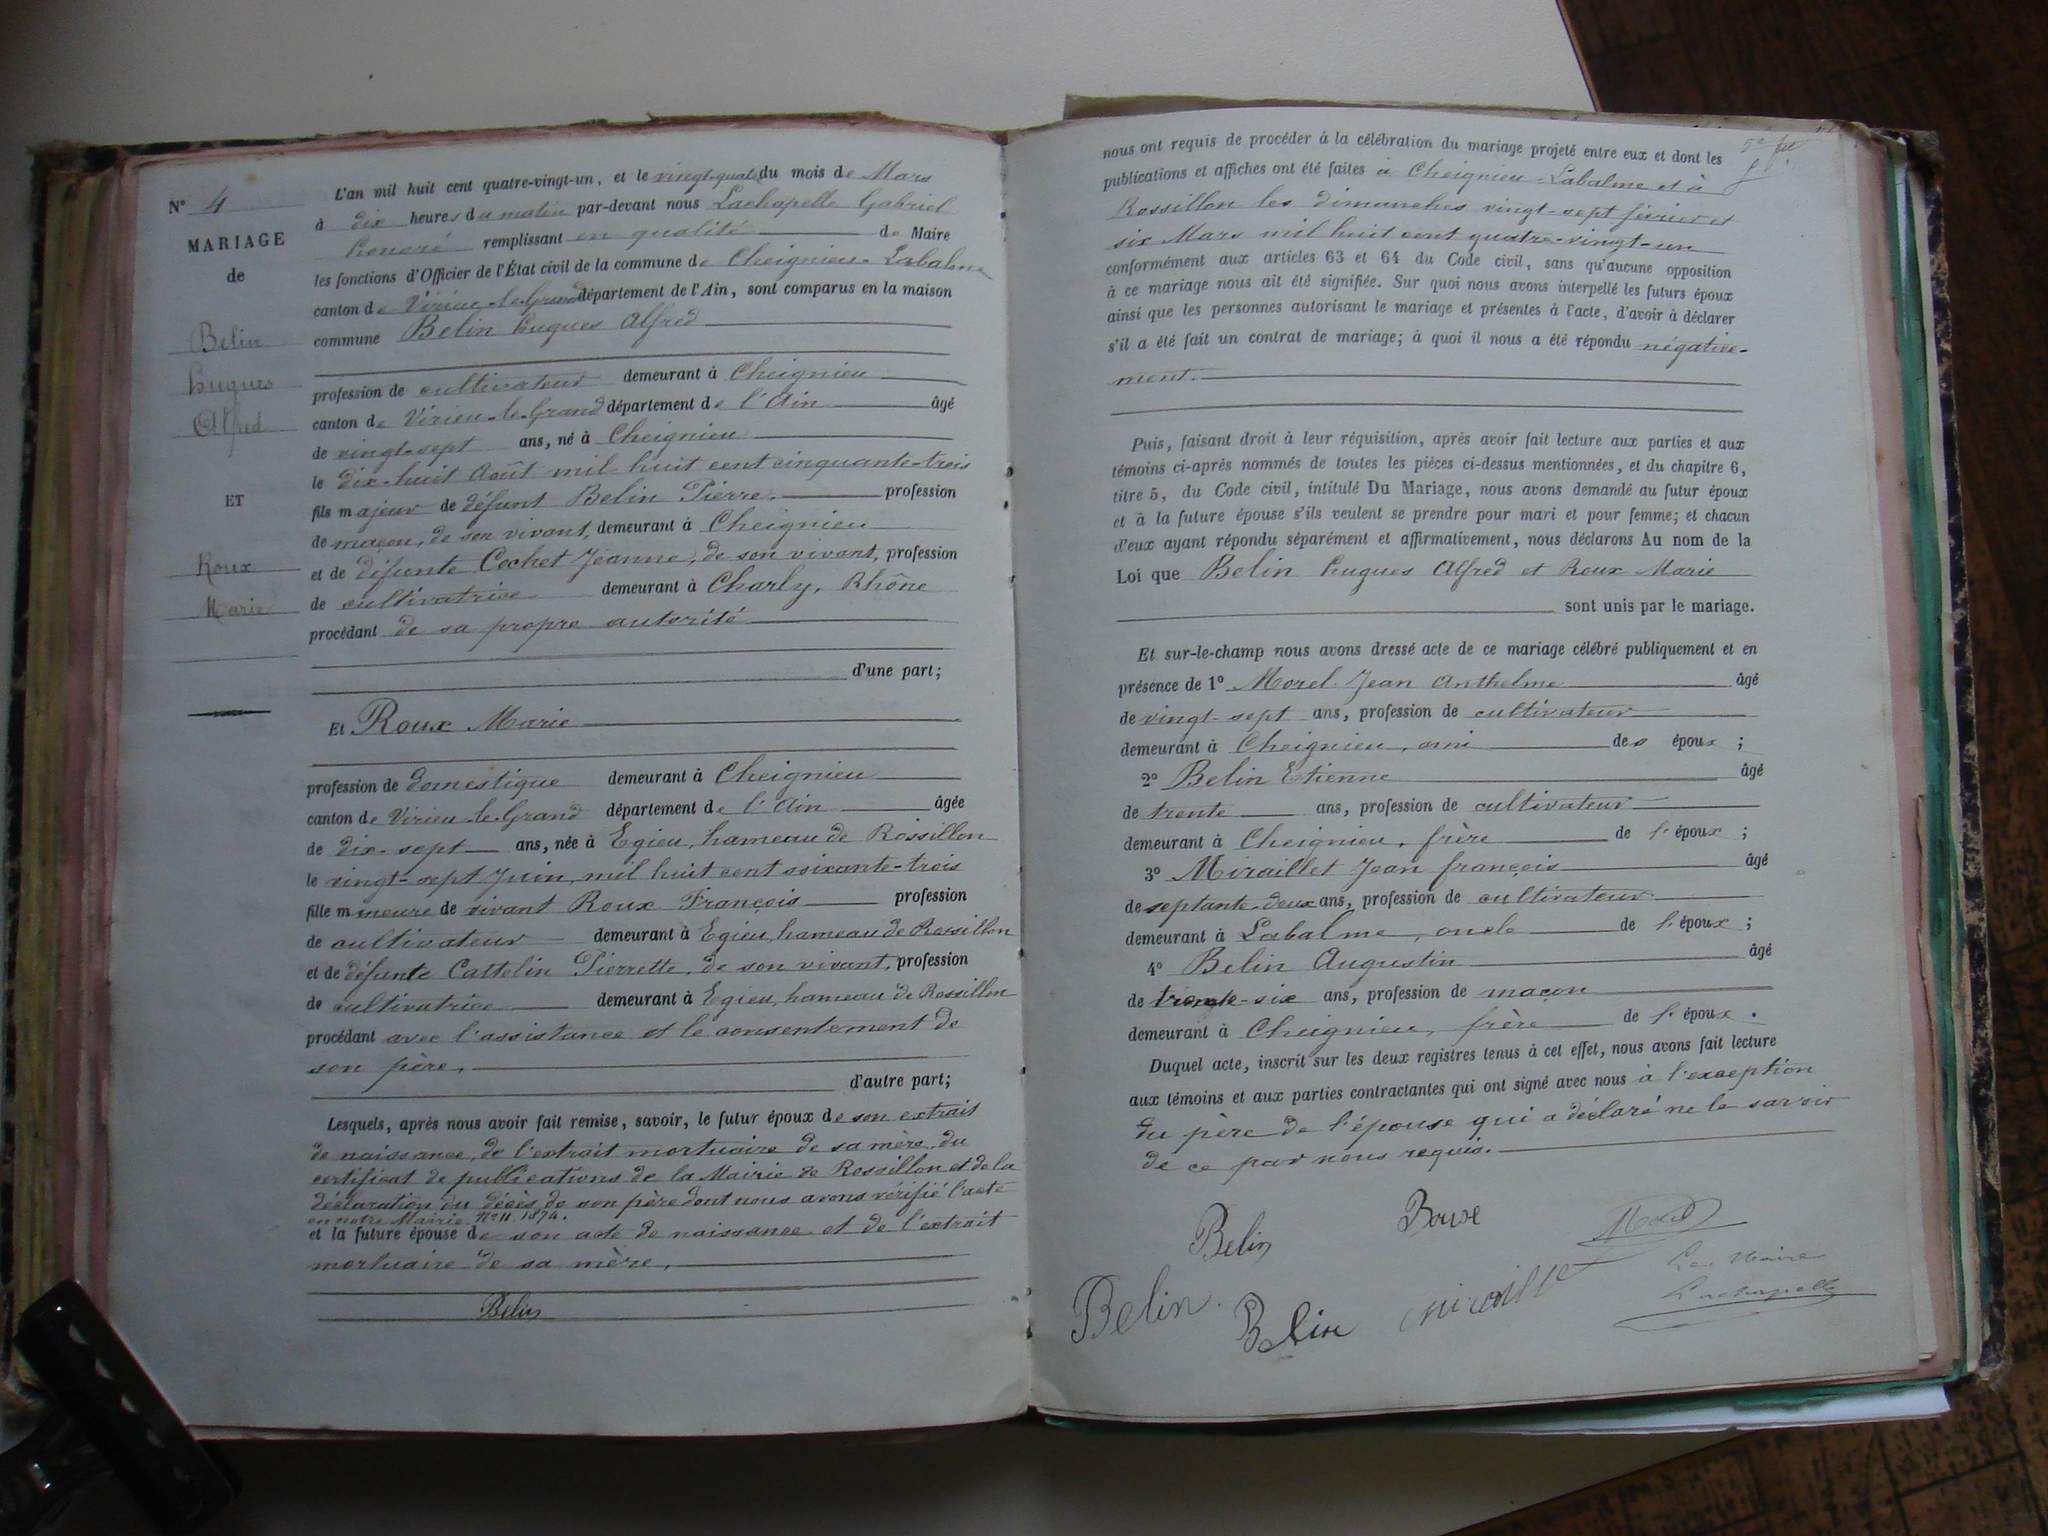 N° 4
MARIAGE
de
Belin
hugues
Alfred
ET
Roux
Marie
L'an mil huit cent quatre-vingt-un, et le vingt-quatre du mois de Mars
à dix heures du matin par-devant nous Lachapelle Gabriel
honoré remplissant en qualité de Maire
les fonctions d'Officier de l'État civil de la commune de Cheignieu-Labalme
canton de Virieu-le-Grand département de l'Ain, sont comparus en la maison
commune Belin hugues Alfred
profession de cultivateur demeurant à Cheignieu
canton de Virieu-le-Grand département de l'Ain âgé
de vingt-sept ans, né à Cheignieu
le dix-huit Août mil huit cent cinquante-trois
fils majeur de défunt Belin Pierre. profession
de maçon, de son vivant, demeurant à Cheignieu
et de défunte Cochet Jeanne, de son vivant, profession
de cultivatrice demeurant à Charly, Rhône
procédant de sa propre autorité
d'une part;
Et Roux Marie
profession de domestique demeurant à Cheignieu
canton de Virieu-le-Grand département de l'Ain âgée
de dix-sept ans, née à Egieu, hameau de Rossillon
le vingt-sept Juin, mil huit cent soixante-trois
fille mineure de vivant Roux François profession
de cultivateur demeurant à Egieu, hameau de Rossillon
et de défunte Cattelin Pierrette, de son vivant, profession
de cultivatrice demeurant à Egieu, hameau de Rossillon
procédant avec l'assistance et le consentement de
son père,
d'autre part;
Lesquels, après nous avoir fait remise, savoir, le futur époux de son extrait
de naissance, de l'extrait mortuaire de sa mère, du
certificat de publications de la Mairie de Rossillon et de la
déclaration du décès de son père dont nous avons vérifié l'acte
en notre Mairie N° 11 1874.
et la future épouse de son acte de naissance et de l'extrait
mortuaire de sa mère,
Belin
nous ont requis de procéder à la célébration du mariage projeté entre eux et dont les
publications et affiches ont été faites à Cheignieu-Labalme et à
Rossillon les dimanches vingt-sept février et
six Mars mil huit cent quatre-vingt-un
conformément aux articles 63 et 64 du Code civil, sans qu'aucune opposition
à ce mariage nous ait été signifiée. Sur quoi nous avons interpellé les futurs époux
ainsi que les personnes autorisant le mariage et présentes à l'acte, d'avoir à déclarer
s'il a été fait un contrat de mariage; à quoi il nous a été répondu négative-
ment.
Puis, faisant droit à leur réquisition, après avoir fait lecture aux parties et aux
témoins ci-après nommés de toutes les pièces ci-dessus mentionnées, et du chapitre 6,
titre 5, du Code civil, intitulé Du Mariage, nous avons demandé au futur époux
et à la future épouse s'ils veulent se prendre pour mari et pour femme; et chacun
d'eux ayant répondu séparément et affirmativement, nous déclarons Au nom de la
Loi que Belin hugues Alfred et Roux Marie
sont unis par le mariage.
Et sur-le-champ nous avons dressé acte de ce mariage célébré publiquement et en
présence de 1° Morel Jean Anthelme âgé
de vingt-sept ans, profession de cultivateur
demeurant à Cheignieu, ami des époux ;
2° Belin Etienne âgé
de trente ans, profession de cultivateur
demeurant à Cheignieu, frère de l'époux ;
3° Miraillet Jean françois âgé
de septante-deux ans, profession de cultivateur
demeurant à Labalme, oncle de l'époux ;
4° Belin Augustin âgé
de trente-six ans, profession de maçon
demeurant à Cheignieu, frère de l'époux.
Duquel acte, inscrit sur les deux registres tenus à cet effet, nous avons fait lecture
aux témoins et aux parties contractantes qui ont signé avec nous à l'exception
du père de l'épouse qui a déclaré ne le savoir
de ce par nous requis.
Belin Morel
Le Maire
Belin. Belin Lachapelle